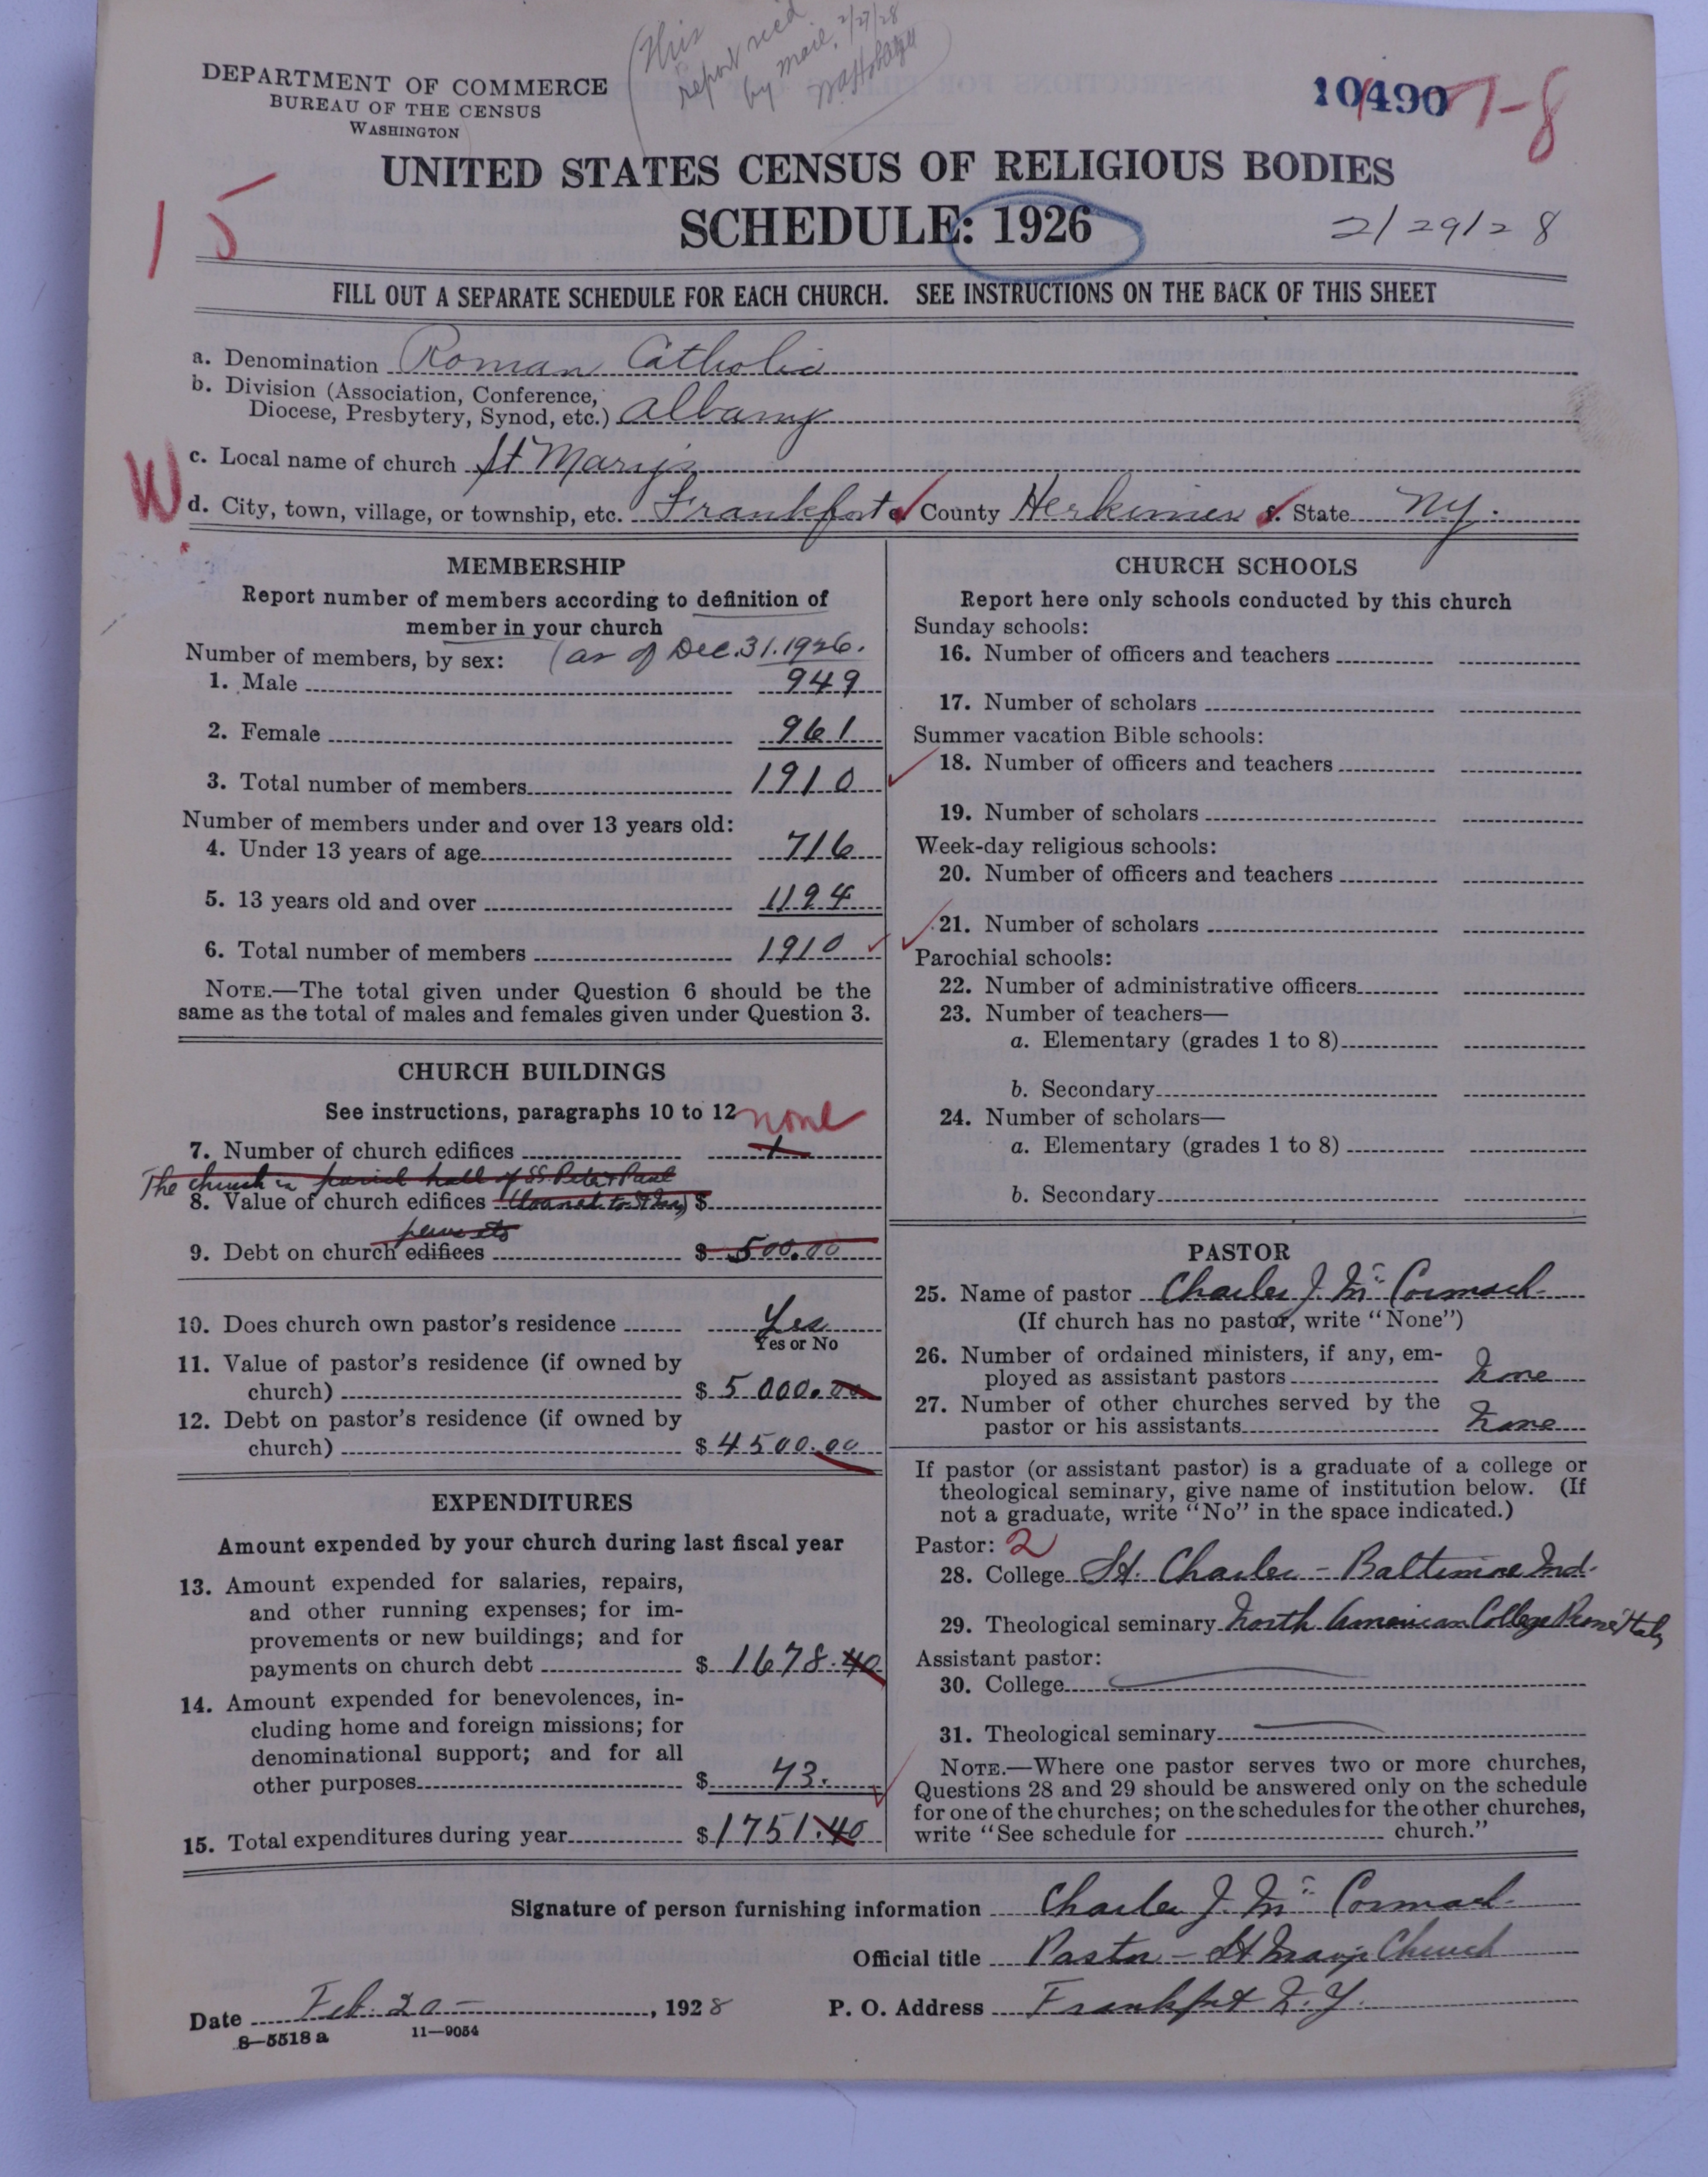 (This
report rec'd
by mail, 2/27/28
DEPARTMENT OF COMMERCE
BUREAU OF THE CENSUS
WASHINGTON
10490 7-8
UNITED STATES CENSUS OF RELIGIOUS BODIES
15
SCHEDULE: 1926
2/29/28
FILL OUT A SEPARATE SCHEDULE FOR EACH CHURCH. SEE INSTRUCTIONS ON THE BACK OF THIS SHEET
a. Denomination Roman Catholic
b. Division (Association, Conference,
Diocese, Presbytery, Synod, etc.) Albany
c. Local name of church St Mary's
W
d. City, town, village, or township, etc. Frankfort e. County Herkimer f. State NY.
MEMBERSHIP
Report number of members according to definition of
member in your church
Number of members, by sex: (as of Dec. 31. 1926.
1. Male 949
2. Female 961
3. Total number of members 1910
Number of members under and over 13 years old:
4. Under 13 years of age 716
5. 13 years old and over 1194
6. Total number of members 1910
NOTE.—The total given under Question 6 should be the
same as the total of males and females given under Question 3.
CHURCH BUILDINGS
See instructions, paragraphs 10 to 12 none
7. Number of church edifices 1
The church is parish hall of SS. Peter & Paul
8. Value of church edifices (loaned to St Mary) $
pews etc
9. Debt on church edifices $ 500.00
10. Does church own pastor's residence Yes
Yes or No
11. Value of pastor's residence (if owned by
church) $ 5000.00
12. Debt on pastor's residence (if owned by
church) $ 4500.00
EXPENDITURES
Amount expended by your church during last fiscal year
13. Amount expended for salaries, repairs,
and other running expenses; for im-
provements or new buildings; and for
payments on church debt $ 1678.40
14. Amount expended for benevolences, in-
cluding home and foreign missions; for
denominational support; and for all
other purposes $ 73.
15. Total expenditures during year $ 1751.40
CHURCH SCHOOLS
Report here only schools conducted by this church
Sunday schools:
16. Number of officers and teachers
17. Number of scholars
Summer vacation Bible schools:
18. Number of officers and teachers
19. Number of scholars
Week-day religious schools:
20. Number of officers and teachers
21. Number of scholars
Parochial schools:
22. Number of administrative officers
23. Number of teachers—
a. Elementary (grades 1 to 8)
b. Secondary
24. Number of scholars—
a. Elementary (grades 1 to 8)
b. Secondary
PASTOR
25. Name of pastor Charles J. Mc Cormack
(If church has no pastor, write "None")
26. Number of ordained ministers, if any, em-
ployed as assistant pastors None
27. Number of other churches served by the
pastor or his assistants None
If pastor (or assistant pastor) is a graduate of a college or
theological seminary, give name of institution below. (If
not a graduate, write "No" in the space indicated.)
Pastor: 2
28. College St. Charles - Baltimore Md.
29. Theological seminary North American College Rome Italy
Assistant pastor:
30. College
31. Theological seminary
NOTE.—Where one pastor serves two or more churches,
Questions 28 and 29 should be answered only on the schedule
for one of the churches; on the schedules for the other churches,
write "See schedule for church."
Signature of person furnishing information Charles J. Mc Cormack
Official title Pastor - St Mary's Church
Date Feb. 20 - , 1928 P. O. Address Frankfort N.Y.
8—5518 a 11—9054